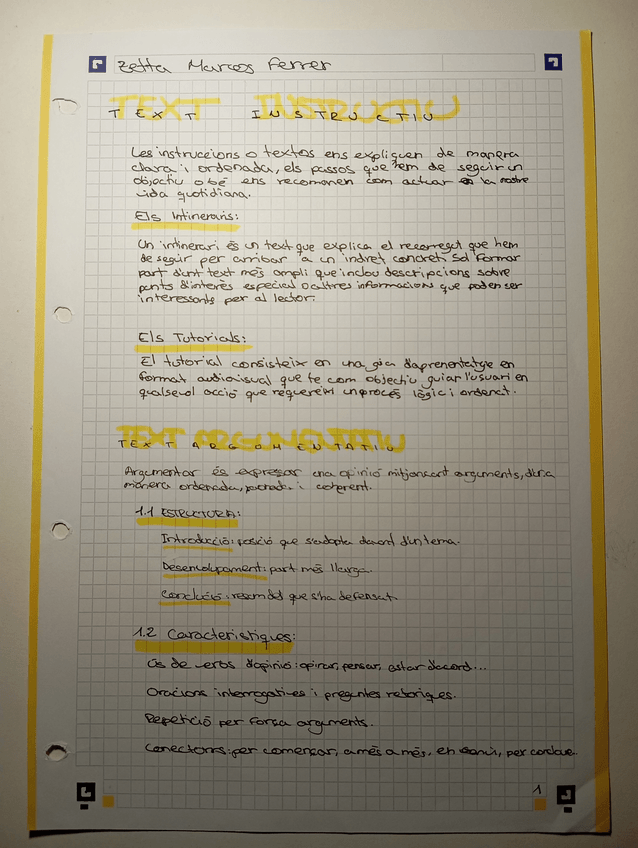 Zetta Marcos Ferrer
TEXT INSTRUCTIU
Les instruccions o textos ens expliquen de manera
clara i ordenada, els passos que hem de seguir un
objectiu o bé ens recomanen com actuar en la nostre
vida quotidiana.
Els Intineraris:
Un intinerari és un text que explica el recorregut que hem
de seguir per arribar a un indret concret. Sol formar
part d'unt text més ampli que inclou descripcions sobre
punts d'interès especial o altres informacions que poden ser
interessants per al lector.
Els Tutorials:
El tutorial consisteix en una gia d'aprenentatge en
format audiovisual que te com objectiu guiar l'usuari en
qualsevol acció que requereixi un procés lògic i ordenat.
TEXT ARGOMENTATIU
Argumentar és expresar una opinió mitjonçant arguments, d'una
manera ordenada, i coherent.
1.1 ESTRUCTURA:
Introducció: posició que s'adopta davant d'un tema.
Desenvolupament: part més llarga.
Conclució: resum del que s'ha defensat.
1.2 Característiques:
Ús de verbs d'opinió: opinar, pensar, estar d'acord...
Oracions interrogatives i preguntes retòriques.
Repetició per força arguments.
Conectorrs: per començar, a més a més, en per concloure.
1